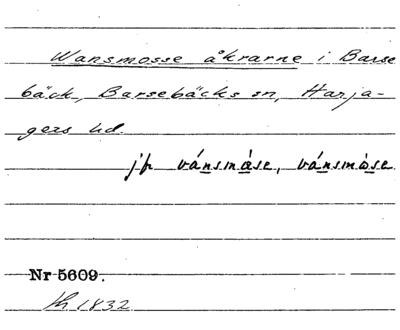 Wansmosse åkrarne i Barse
bäck, Barsebäcks sn, Harja-
gers hd.
jfr vánsmàse, vánsmòse
Nr 5609.
1832